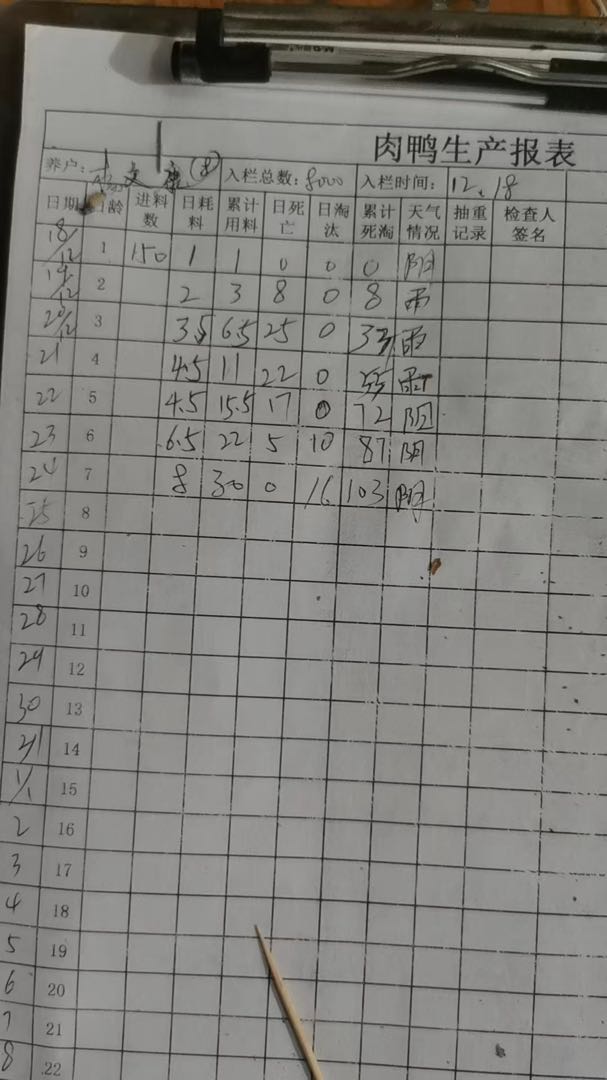 肉鸭生产报表
养户: 文 (8) 入栏总数: 8000 入栏时间: 12.18
日期 日龄 进料数 日耗料 累计用料 日死亡 日淘汰 累计死淘 天气情况 抽重记录 检查人签名
18/12 1 150 1 1 0 0 0 阴
19/12 2 2 3 8 0 8 雨
20/12 3 3.5 6.5 25 0 33 雨
21 4 4.5 11 22 0 55 雨
22 5 4.5 15.5 17 0 72 阴
23 6 6.5 22 5 10 87 阴
24 7 8 30 0 16 103 阴
25 8
26 9
27 10
28 11
29 12
30 13
31 14
1/1 15
2 16
3 17
4 18
5 19
6 20
7 21
8 22